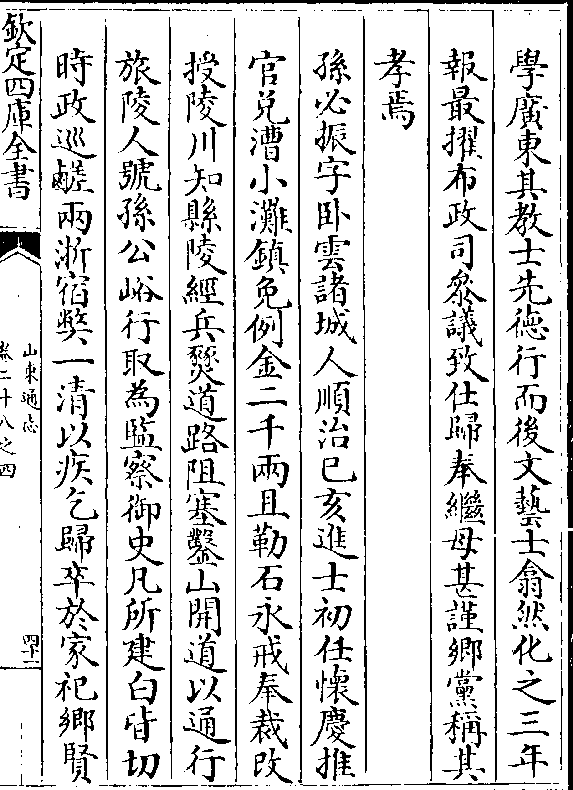 學廣東其教士先德行而後文藝士翕然化之三年
報最擢布政司叅議致仕歸奉繼母甚謹鄉黨稱其
孝焉
孫必振字卧雲諸城人順治己亥進士初任懷慶推
官兌漕小灘鎮免例金二千兩且勒石永戒奉裁改
授陵川知縣陵經兵燹道路阻塞鑿山開道以通行
旅陵人號孫公峪行取為監察御史凡所建白皆切
時政巡鹺兩浙宿獘一清以疾乞歸卒於家祀鄉賢
欽定四庫全書
山東通志
卷二十八之四
四十二